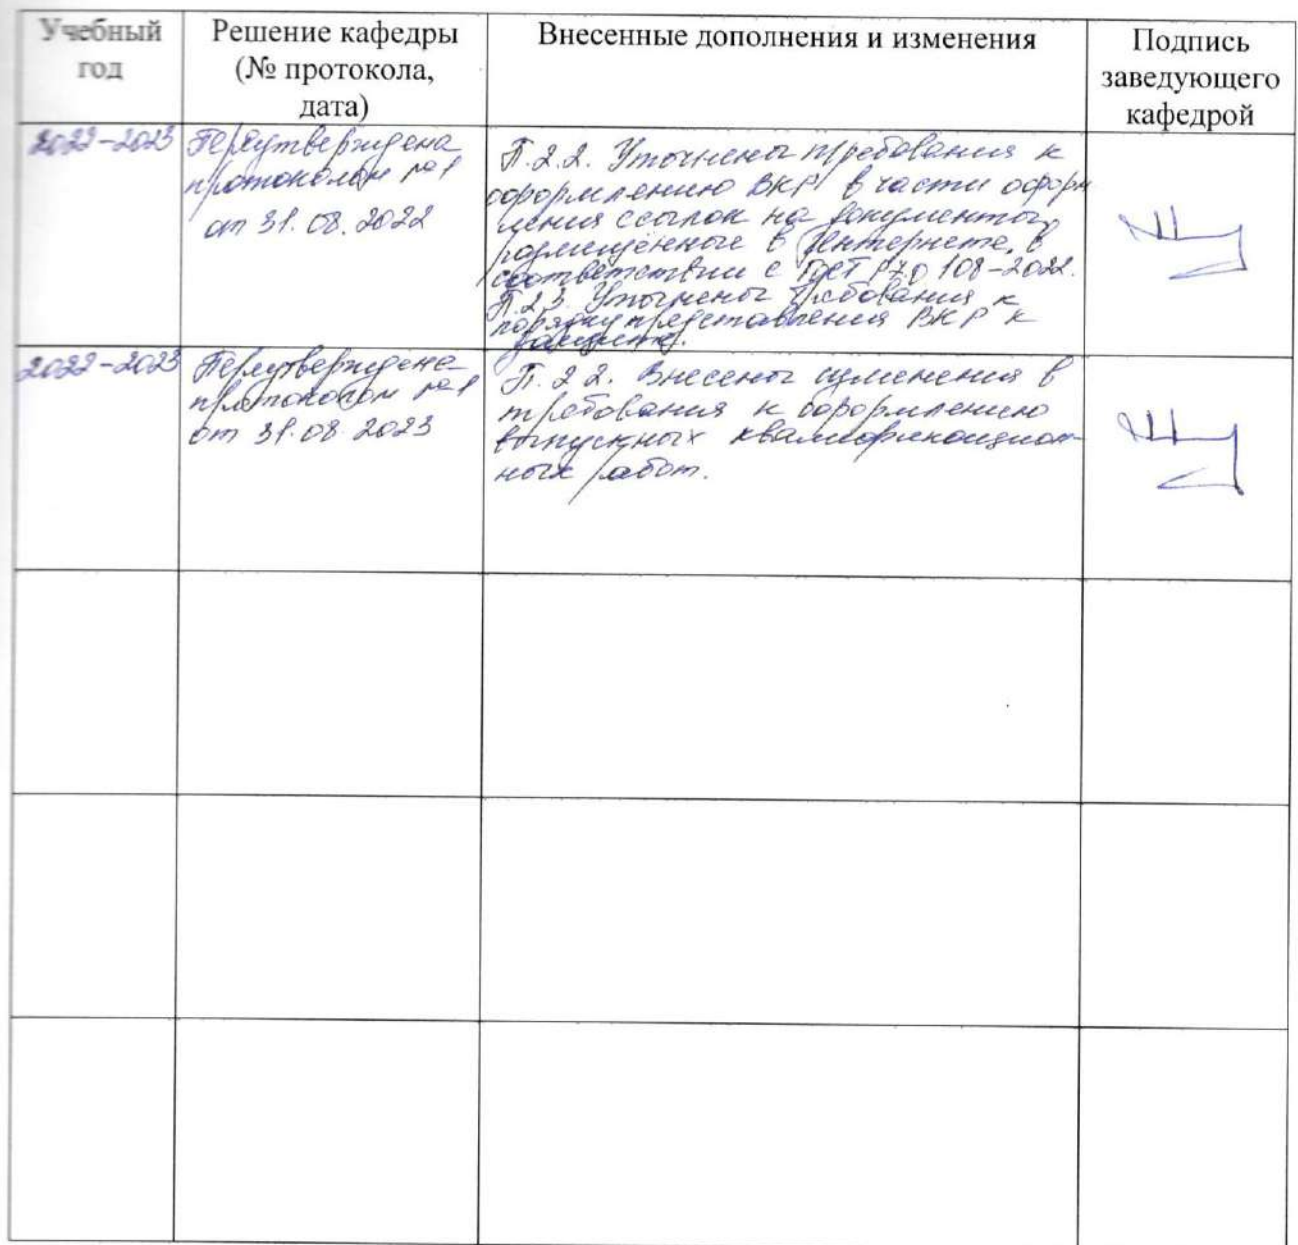 Учебный
год
Решение кафедры
(№ протокола,
дата)
Внесенные дополнения и изменения
Подпись
заведующего
кафедрой
2022-2023
Переутверждена
протоколом №1
от 31.08.2022
П.2.2. Уточнены требования к
оформлению ВКР в части оформ
ления ссылок на документы,
размещённые в Интернете, в
соответствии с ГОСТ Р 7.0.108-2022.
П.2.3. Уточнены требования к
порядку представления ВКР к
защите.
2022-2023
Переутверждена
протоколом №1
от 31.08.2023
П.2.2. Внесены изменения в
требования к оформлению
выпускных квалификацион-
ных работ.